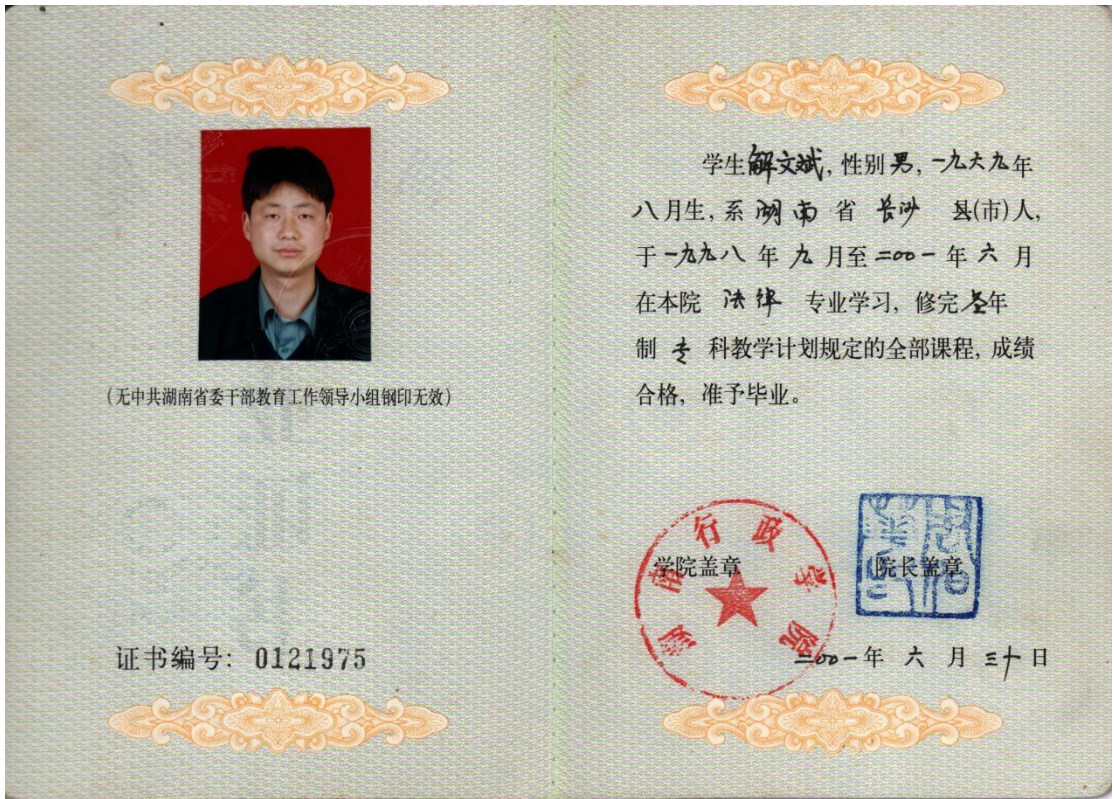 (无中共湖南省委干部教育工作领导小组钢印无效)
证书编号: 0121975
学生解文斌, 性别男, 一九六九年
八月生, 系湖南省长沙县(市)人,
于一九九八年九月至二〇〇一年六月
在本院法律专业学习, 修完叁年
制专科教学计划规定的全部课程, 成绩
合格, 准予毕业。
湖南行政学院
学院盖章 院长盖章
二〇〇一年六月三十日